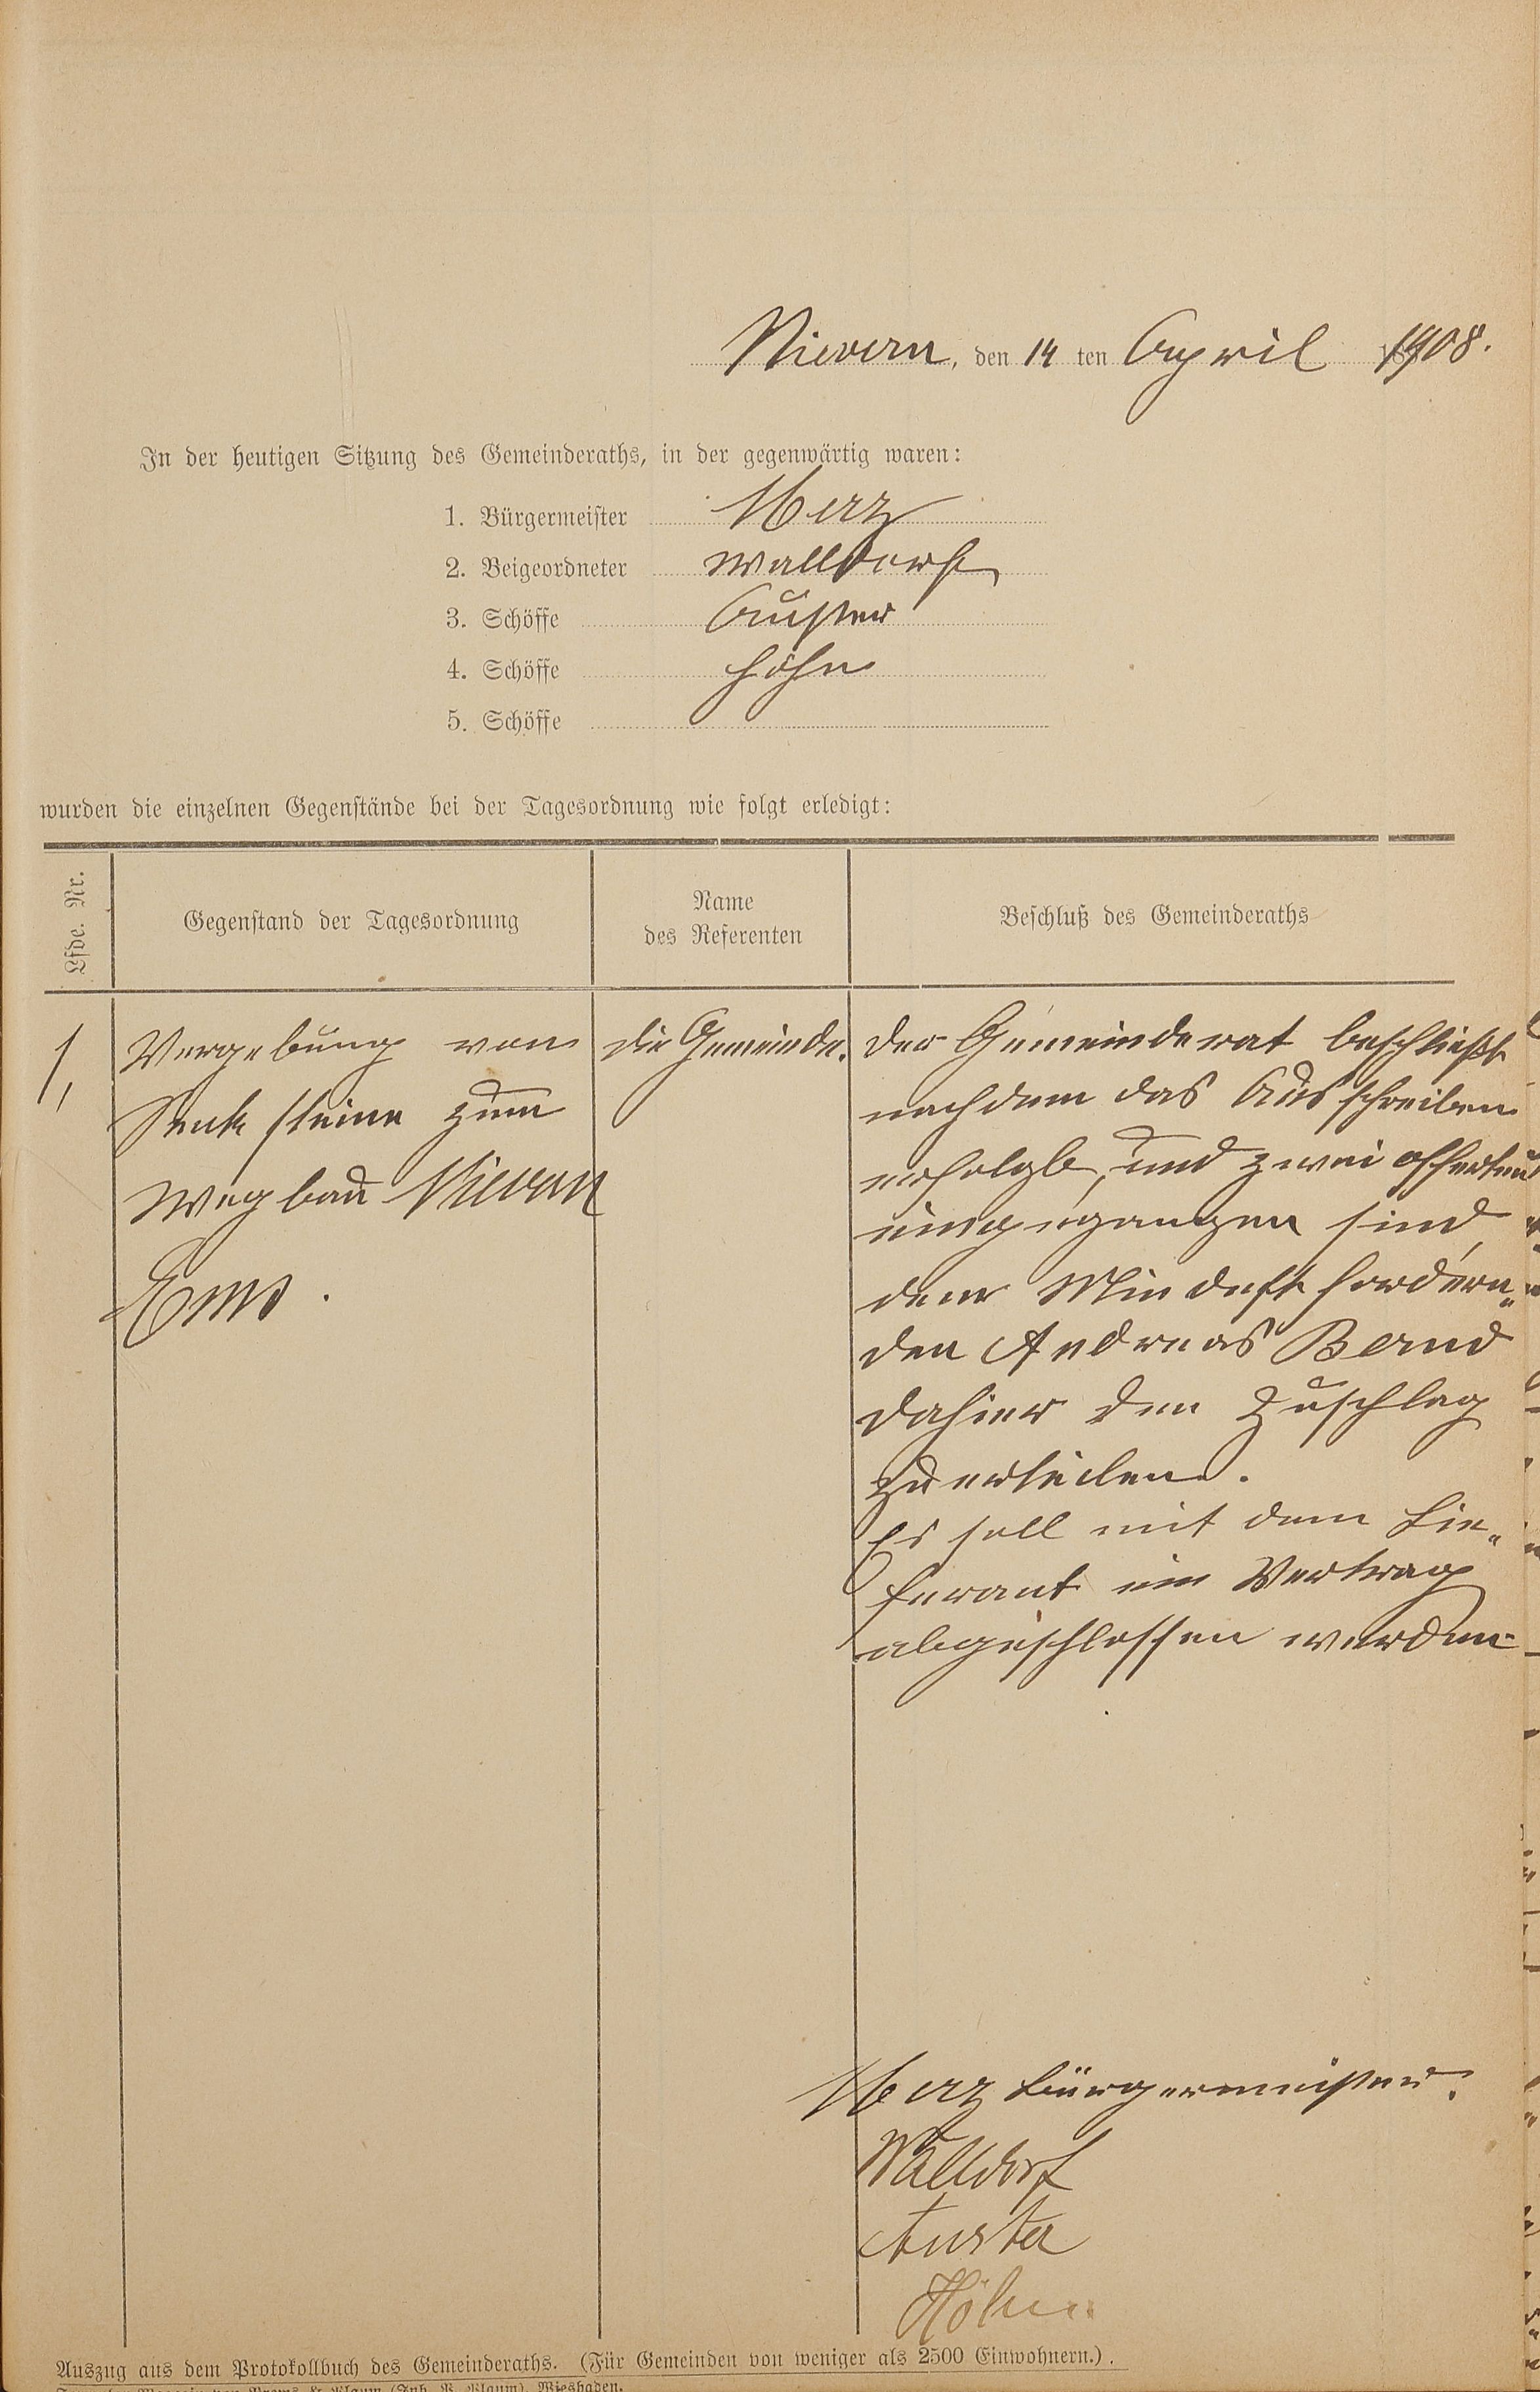 Nievern, den 14 ten April 1908.
In der heutigen Sitzung des Gemeinderaths, in der gegenwärtig waren:
1. Bürgermeister Merz
2. Beigeordneter Walldorf
3. Schöffe Auster
4. Schöffe Höhn
5. Schöffe
wurden die einzelnen Gegenstände bei der Tagesordnung wie folgt erledigt:
Lfde. Nr.
Gegenstand der Tagesordnung
Name
des Referenten
Beschluß des Gemeinderaths
1,
Vergebung von
Senksteine zum
Wegbau Nievern
Ems.
die Gemeinde.
Der Gemeinderat beschließt
nachdem das Ausschreiben
erfolgt, und zwei Offerten
eingegangen sind,
dem Mindestfordern„
den Andreas Bernd
dahier den Zuschlag
zu erteilen.
Es soll mit dem Lie„
ferant ein Vertrag
abgeschlossen werden
Merz Bürgermeister.
Walldorf
Auster
Höhn
Auszug aus dem Protokollbuch des Gemeinderaths. (Für Gemeinden von weniger als 2500 Einwohnern.).
Wiesbaden.